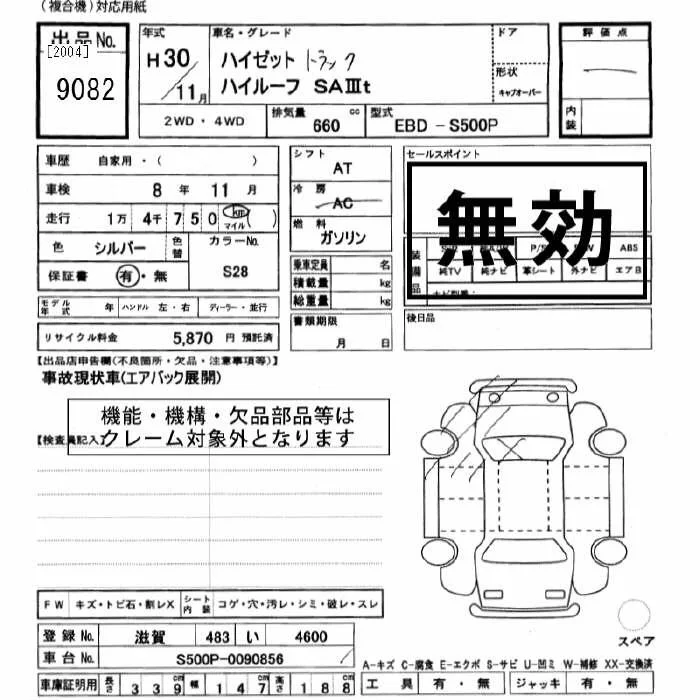 (複合機)対応用紙
出品No.
[2004]
9082
年式
H30
11月
車名・グレード
ハイゼット トラック
ハイルーフ SAⅢt
ドア
形状
キャブオーバー
評価点
内装
2WD・4WD
排気量 660 cc
型式 EBD-S500P
車歴 自家用・( )
車検 8年 11月
走行 1万 4千 750 km マイル ( )
色 シルバー 色替
カラーNo. S28
保証書 有・無
モデル年式 年 ハンドル 左・右 ディーラー・並行
リサイクル料金 5,870円 預託済
シフト AT
冷房 AC
燃料 ガソリン
乗車定員 名
積載量 kg
総重量 kg
書類期限
月 日
セールスポイント
無効
装備品
P/S ABS
純TV 純ナビ 革シート 外ナビ エアB
後日品
【出品店申告欄(不良箇所・欠品・注意事項等)】
事故現状車(エアバック展開)
機能・機構・欠品部品等は
クレーム対象外となります
【検査員記入】
FW キズ・トビ石・割レX シート内装 コゲ・穴・汚レ・シミ・破レ・スレ
登録No. 滋賀 483 い 4600
車台No. S500P-0090856
車庫証明用 長さ 339cm 幅 147cm 高さ 188cm
スペア
A-キズ C-腐食 E-エクボ S-サビ U-凹ミ W-補修 XX-交換済
工具 有・無 ジャッキ 有・無